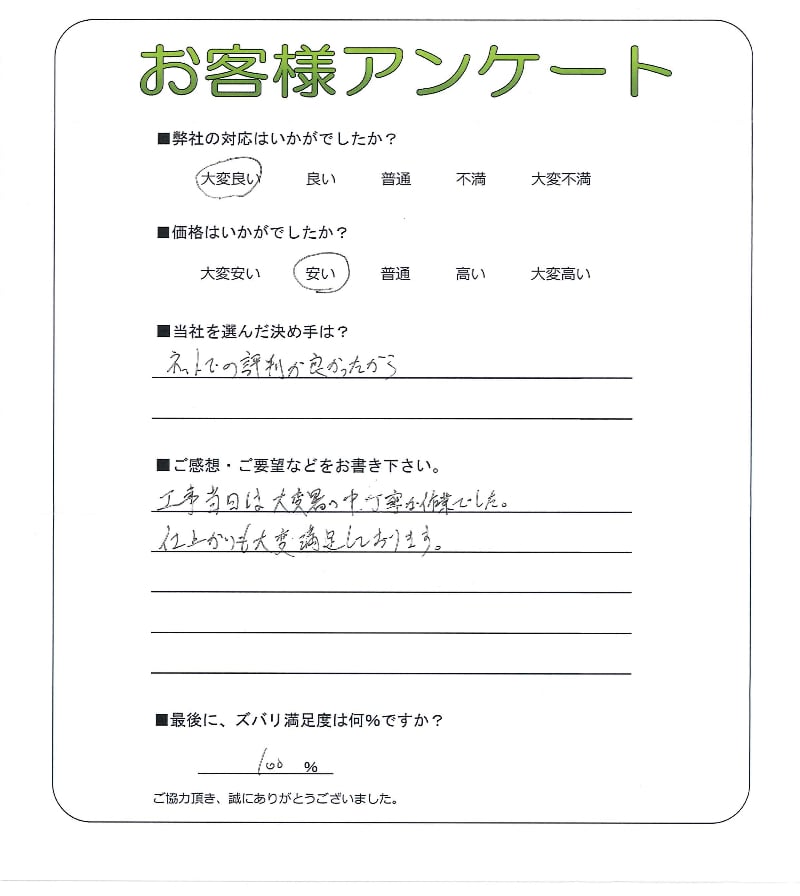 お客様アンケート
■弊社の対応はいかがでしたか？
大変良い 良い 普通 不満 大変不満
■価格はいかがでしたか？
大変安い 安い 普通 高い 大変高い
■当社を選んだ決め手は？
ネットでの評判が良かったから
■ご感想・ご要望などをお書き下さい。
工事当日は大変暑い中、丁寧な作業でした。
仕上がりも大変満足しております。
■最後に、ズバリ満足度は何％ですか？
100 ％
ご協力頂き、誠にありがとうございました。